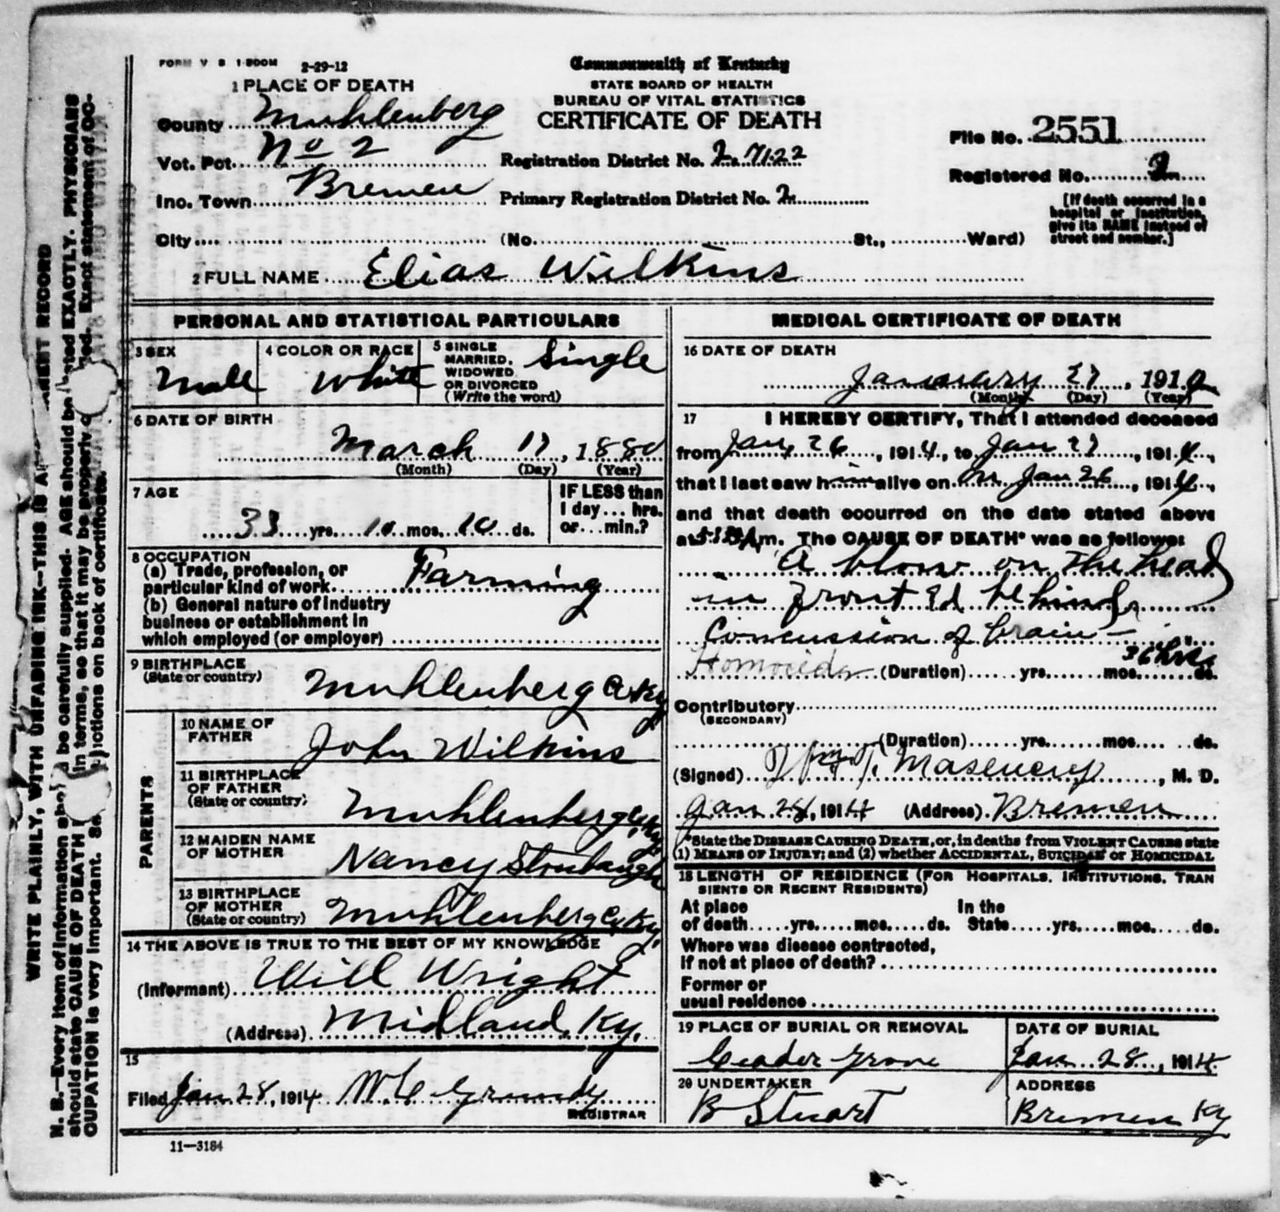 FORM V S 1-500M 2-29-12
Commonwealth of Kentucky
STATE BOARD OF HEALTH
BUREAU OF VITAL STATISTICS
CERTIFICATE OF DEATH
1 PLACE OF DEATH
County Muhlenberg
Vot. Pct. No 2
Registration District No. 2. 7122
Ino. Town Bremen
Primary Registration District No. 2
File No. 2551
Registered No. 2
[If death occurred in a
hospital or institution,
give its NAME instead of
street and number.]
City (No. St., Ward)
2 FULL NAME Elias Wilkins
PERSONAL AND STATISTICAL PARTICULARS
3 SEX
Male
4 COLOR OR RACE
White
5 SINGLE
MARRIED,
WIDOWED
OR DIVORCED
(Write the word)
Single
6 DATE OF BIRTH
March 17, 1880
(Month) (Day) (Year)
7 AGE
33 yrs. 10 mos. 10 ds.
IF LESS than
1 day... hrs.
or... min.?
8 OCCUPATION
(a) Trade, profession, or
particular kind of work Farming
(b) General nature of industry
business or establishment in
which employed (or employer)
9 BIRTHPLACE
(State or country)
Muhlenberg Co Ky
PARENTS
10 NAME OF
FATHER
John Wilkins
11 BIRTHPLACE
OF FATHER
(State or country)
Muhlenberg Co Ky
12 MAIDEN NAME
OF MOTHER
Nancy Stroubaugh
13 BIRTHPLACE
OF MOTHER
(State or country)
Muhlenberg Co Ky.
14 THE ABOVE IS TRUE TO THE BEST OF MY KNOWLEDGE
(Informant) Will Wright
(Address) Midland, Ky.
15
Filed Jan 28, 1914 W C Grundy
REGISTRAR
11—3184
MEDICAL CERTIFICATE OF DEATH
16 DATE OF DEATH
January 27, 191
(Month) (Day) (Year)
17 I HEREBY CERTIFY, That I attended deceased
from Jan 26, 1914, to Jan 27, 1914,
that I last saw him alive on on Jan 26, 1914,
and that death occurred on the date stated above
at m. The CAUSE OF DEATH* was as follows:
A blow on the head
in front behind
Concussion of brain —
Homocide (Duration) yrs. mos. 36 hrs ds.
Contributory
(SECONDARY)
(Duration) yrs. mos. ds.
(Signed) T. Masencey, M. D.
Jan 28, 1914 (Address) Bremen
*State the DISEASE CAUSING DEATH, or, in deaths from VIOLENT CAUSES state
(1) MEANS OF INJURY; and (2) whether ACCIDENTAL, SUICIDAL or HOMICIDAL
18 LENGTH OF RESIDENCE (FOR HOSPITALS, INSTITUTIONS, TRAN
SIENTS OR RECENT RESIDENTS)
At place In the
of death yrs. mos. ds. State yrs. mos. ds.
Where was disease contracted,
if not at place of death?
Former or
usual residence
19 PLACE OF BURIAL OR REMOVAL
Ceader Grove
DATE OF BURIAL
Jan 28, 1914
20 UNDERTAKER
B Stuart
ADDRESS
Bremen Ky
WRITE PLAINLY, WITH UNFADING INK—THIS IS A RECORD
N. B.—Every item of information be carefully supplied. AGE should be stated EXACTLY. PHYSICIANS
should state CAUSE OF DEATH in terms, so that it may be properly Exact statement of OC-
CUPATION is very important. See on back of certificate.